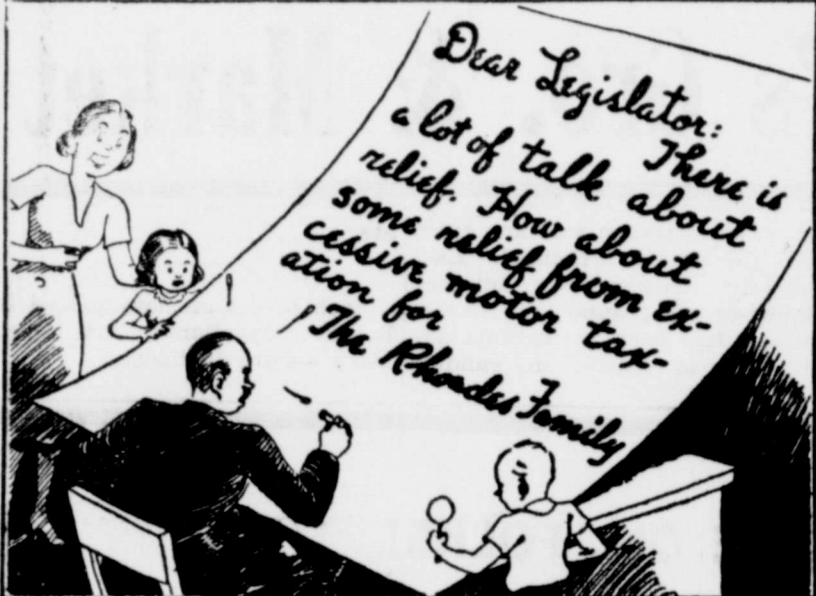 Dear Legislator:
There is
a lot of talk about
relief. How about
some relief from ex-
cessive motor tax-
ation for
The Rhoades Family